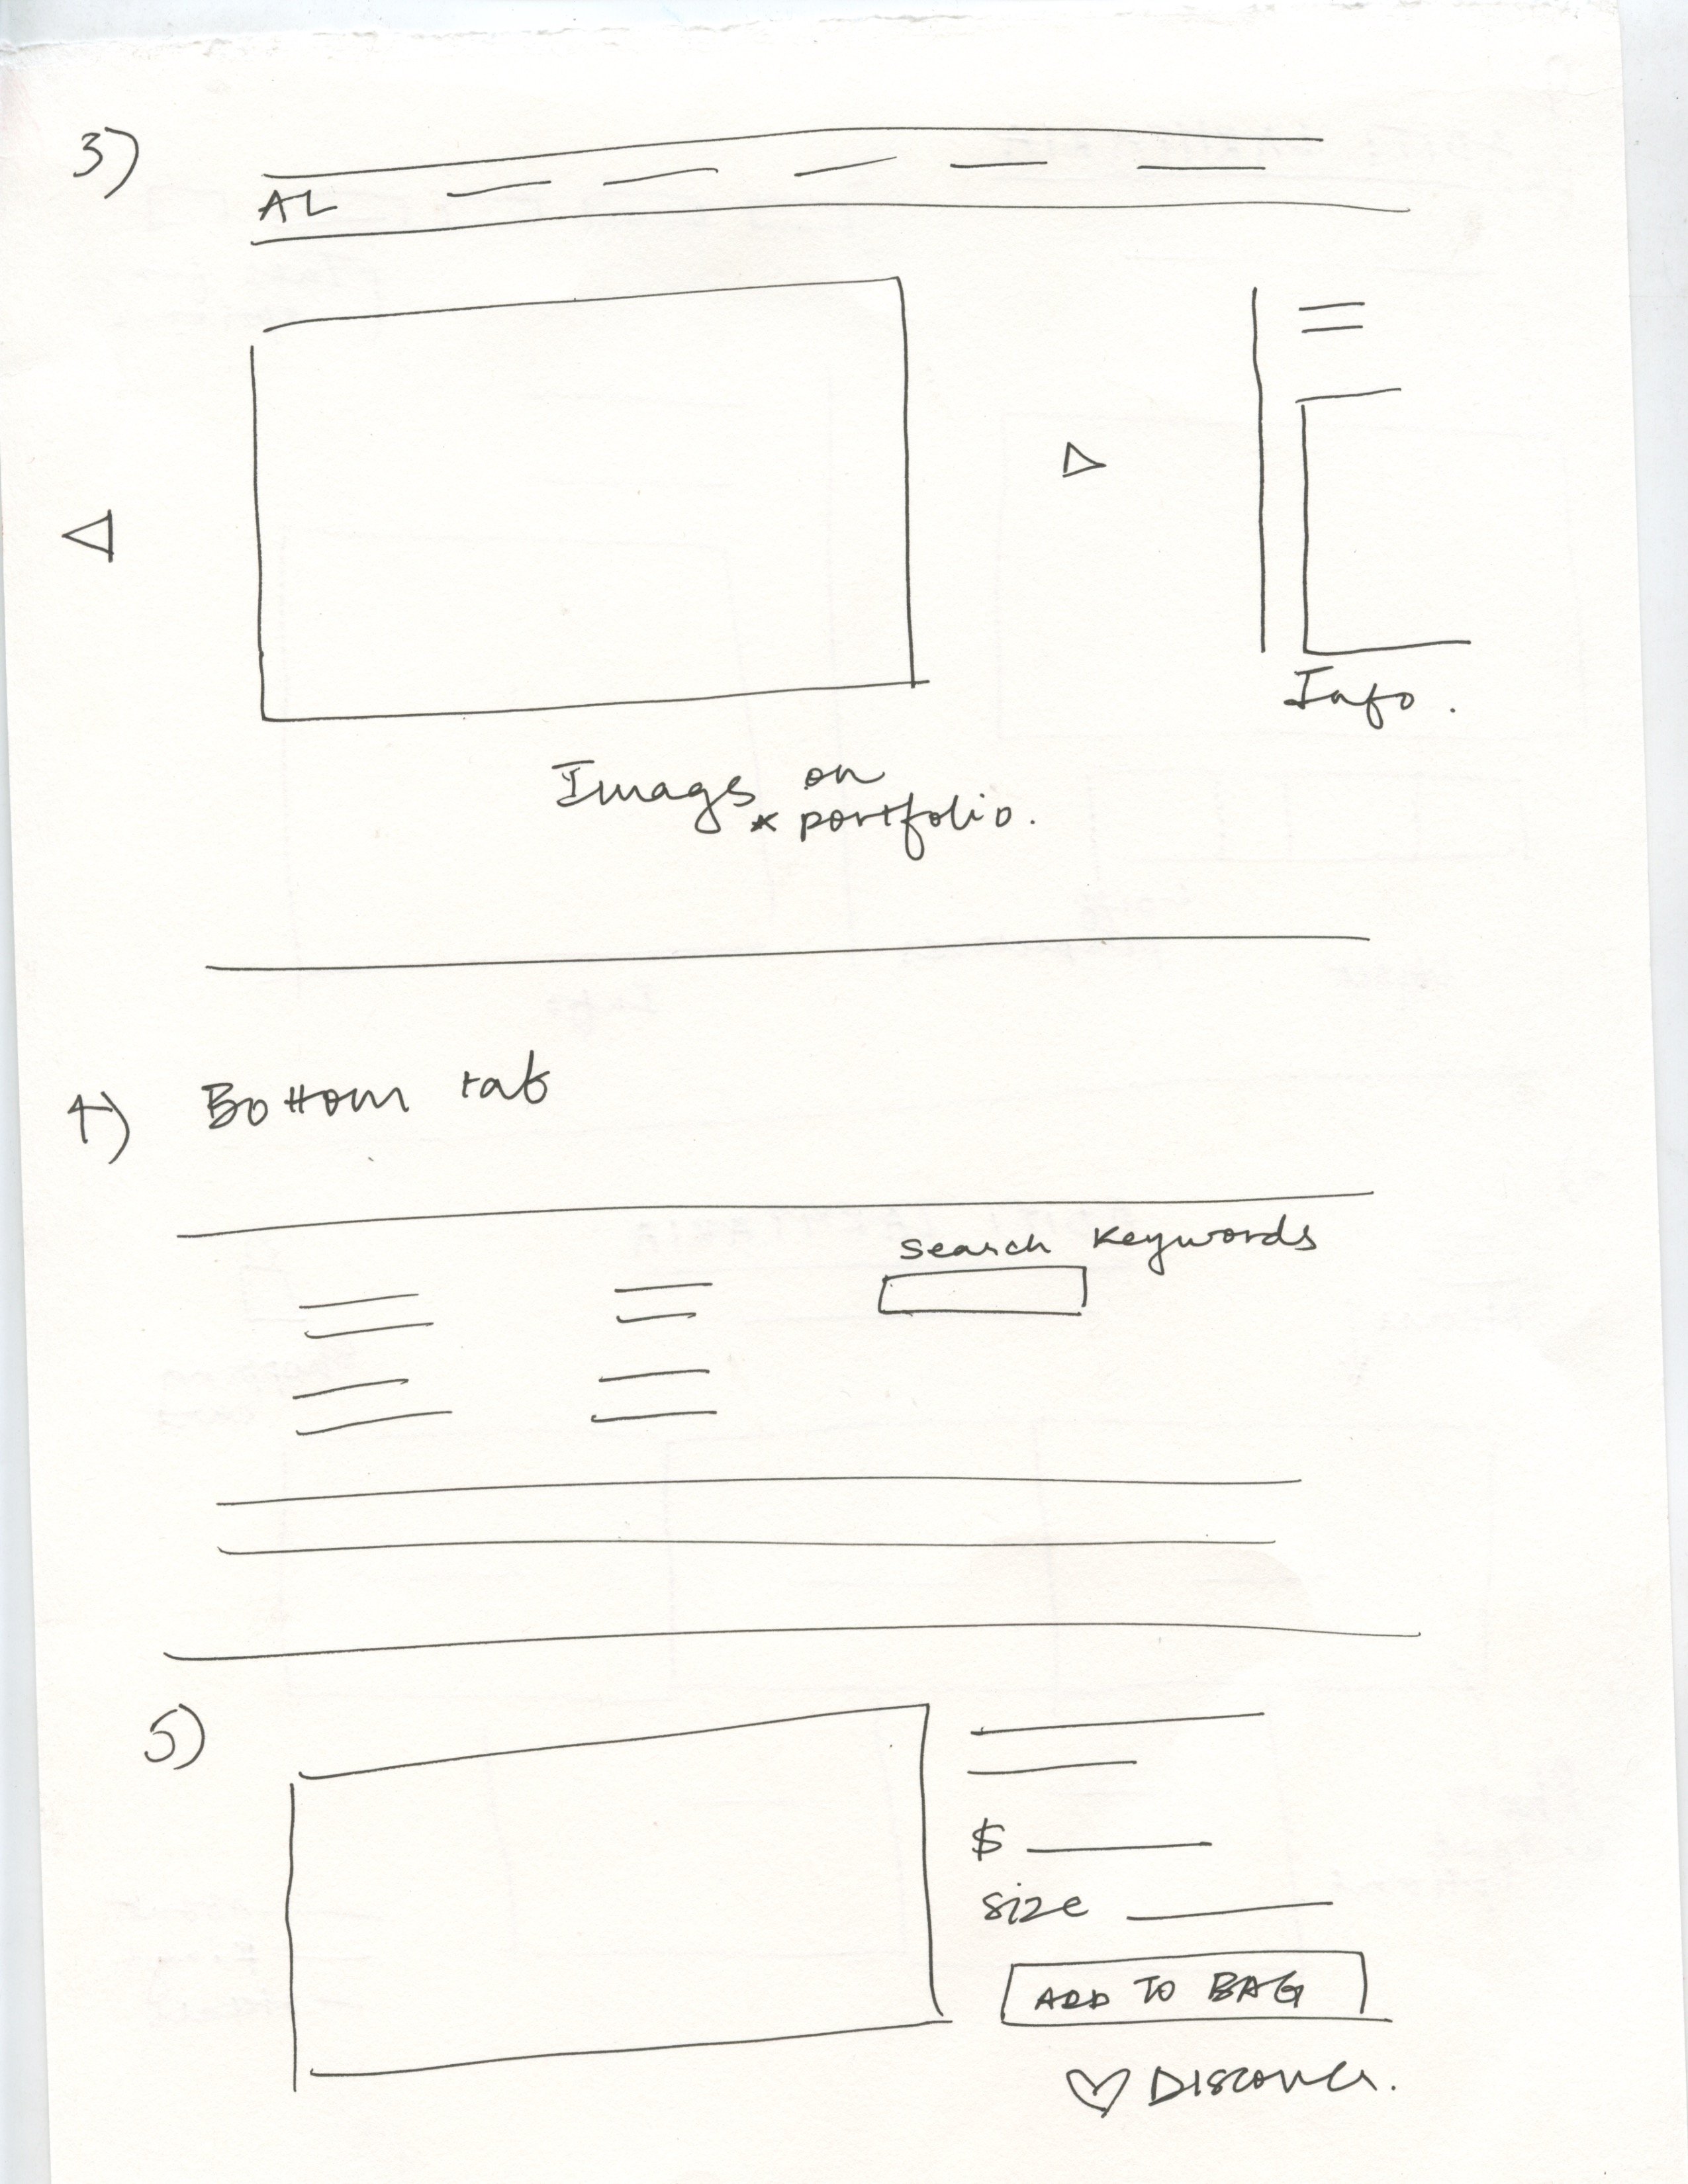 3)
AL
Info.
Imags on
* portfolio.
4) Bottom tab
search keywords
5)
$
size
ADD TO BAG
♡ DISCOVER.